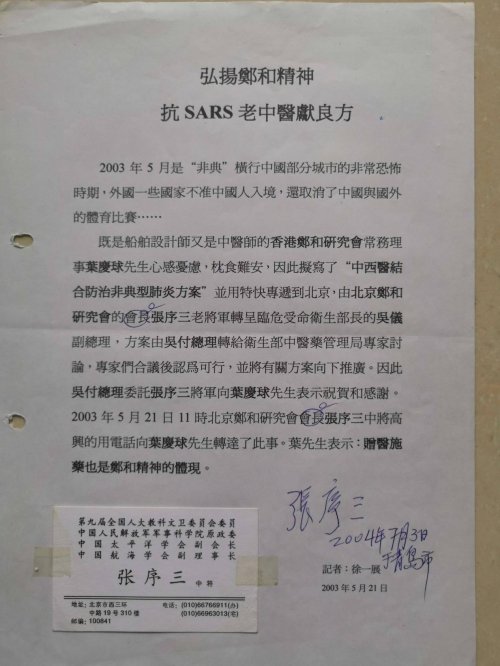 弘揚鄭和精神
抗 SARS 老中醫獻良方
2003 年 5 月是“非典”橫行中國部分城市的非常恐怖
時期，外國一些國家不准中國人入境，還取消了中國與國外
的體育比賽……
既是船舶設計師又是中醫師的香港鄭和研究會常務理
事葉慶球先生心感憂慮，枕食難安，因此擬寫了“中西醫結
合防治非典型肺炎方案”並用特快專遞到北京，由北京鄭和
研究會的會長張序三老將軍轉呈臨危受命衛生部長的吳儀
副總理，方案由吳付總理轉給衛生部中醫藥管理局專家討
論，專家們合議後認爲可行，並將有關方案向下推廣。因此
吳付總理委託張序三將軍向葉慶球先生表示祝賀和感謝。
2003 年 5 月 21 日 11 時北京鄭和研究會會長張序三中將高
興的用電話向葉慶球先生轉達了此事。葉先生表示：贈醫施
藥也是鄭和精神的體現。
張序三
2004年7月3日
于青島市
記者：徐一展
2003 年 5 月 21 日
第九届全国人大教科文卫委员会委员
中国人民解放军军事科学院原政委
中国太平洋学会副会长
中国航海学会副理事长
张序三 中将
地址：北京市西三环 电话：(010)66766911(办)
中路 19 号 310 楼 (010)66963013(宅)
邮编：100841